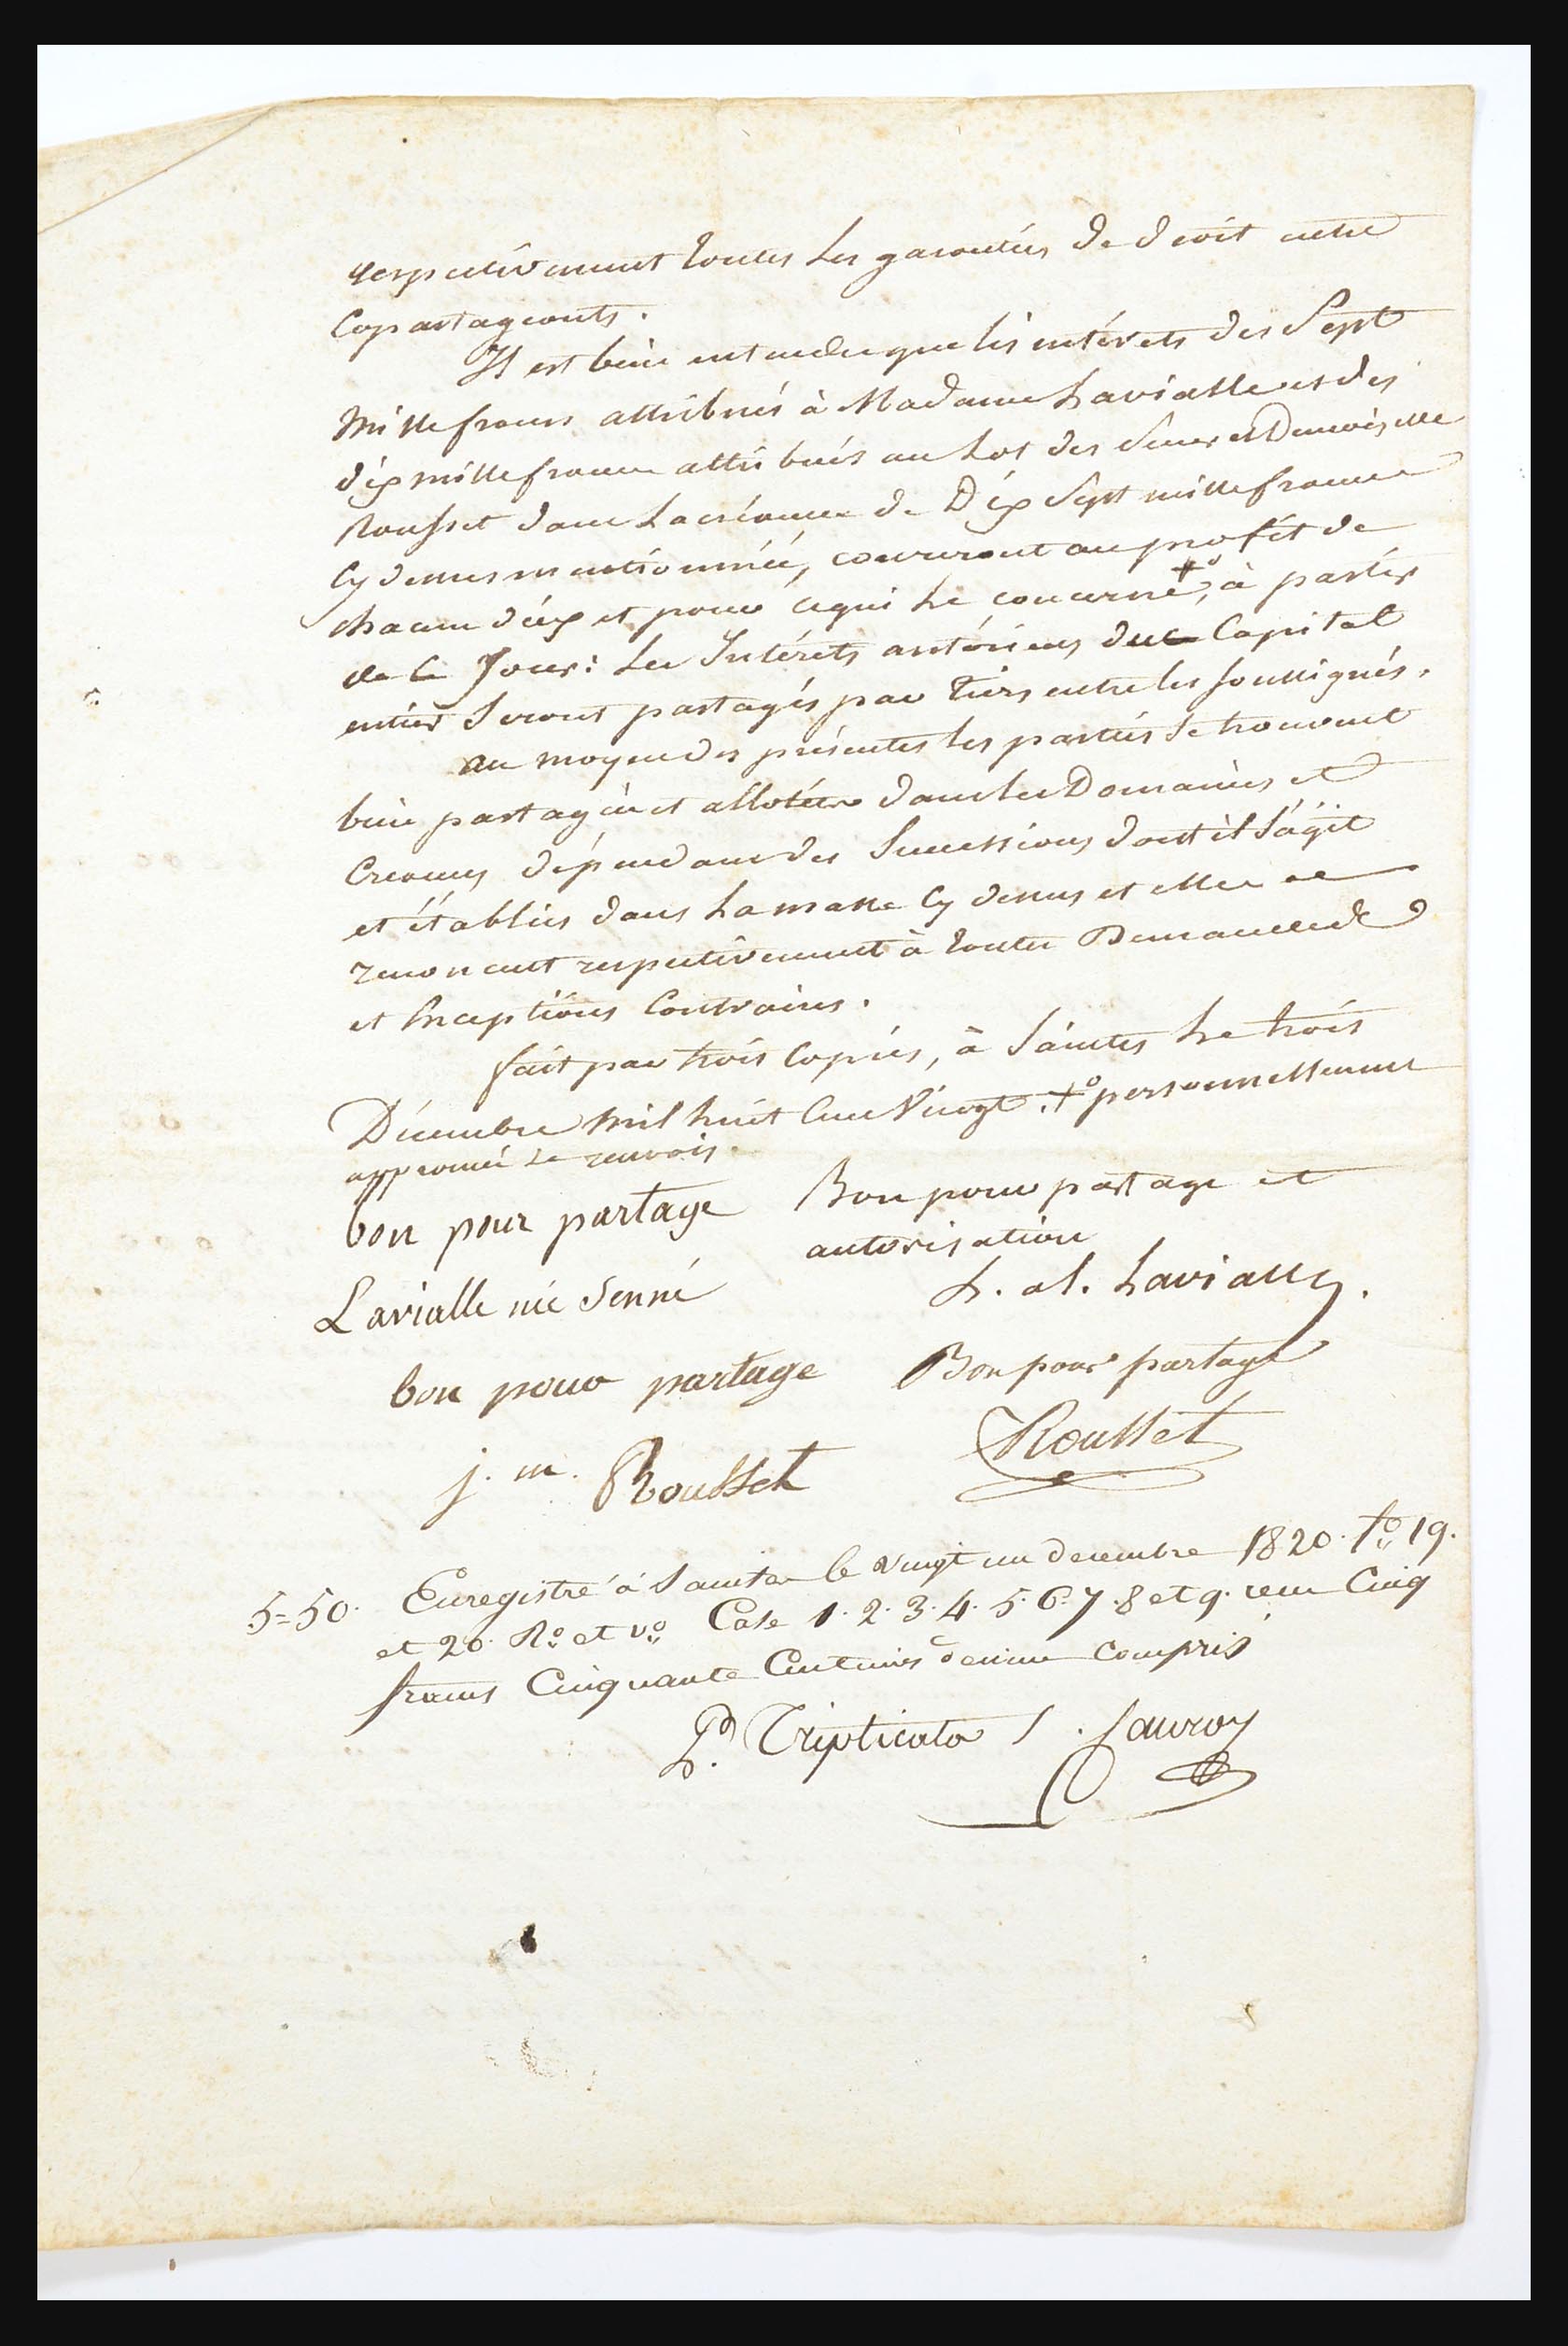 respectivement toutes les garanties de droit entre
Copartageants.
Il est bien entendu que les intérets des Sept
Mille francs attribués à Madame Lavialle et des
dix mille francs attribués au Lot des Sieur et Demoiselle
Rousset dans La créance de Dix Sept mille francs
Cy dessus mentionnée, courront au profit de
chacun d'eux et pour ce qui Le concerne +°, à partir
de Ce Jour: Les Intérets antérieurs du Capital
entier Seront partagés par tiers entre les soussignés.
au moyen des présentes les parties Se trouvent
bien partagées et alloties dans les Domaines et
Creances dépendant des Successions dont il S'agit
et établies dans La masse Cy dessus et elles
renoncent respectivement à toutes Demandes
et Exceptions Contraires.
fait par trois Copies, à Saintes Le trois
Décembre Mil huit Cent Vingt. +° personnellement
approuvé Le renvois.
bon pour partage
Bon pour partage et
autorisation
Lavialle née Senné
L. al. Lavialle.
bon pour partage
Bon pour partage
j. m. Rousset
Rousset
5=50. Enregistré à Saintes le vingt un decembre 1820. f° 19.
et 20. R° et v° Case 1. 2. 3. 4. 5. 6. 7. 8 et 9. reçu Cinq
francs Cinquante Centimes decime compris
Pr. Triplicata Sauroy